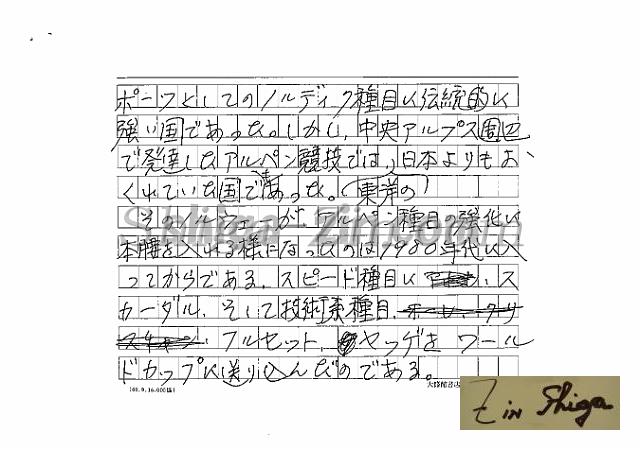 ポーツとしてのノルディク種目に伝統的に
強い国であった。しかし、中央アルプス周辺
で発達したアルペン競技では、日本よりもお
くれていた国であった。(東洋の)
そのノルウェーがアルペン種目の強化に
本腰を入れる様になったのは1980年代に入
ってからである。スピード種目に、ス
カーダル、そして技術系種目、
フルセット、ヤッゲをワール
ドカップに送り込んだのである。
Z in Shiga